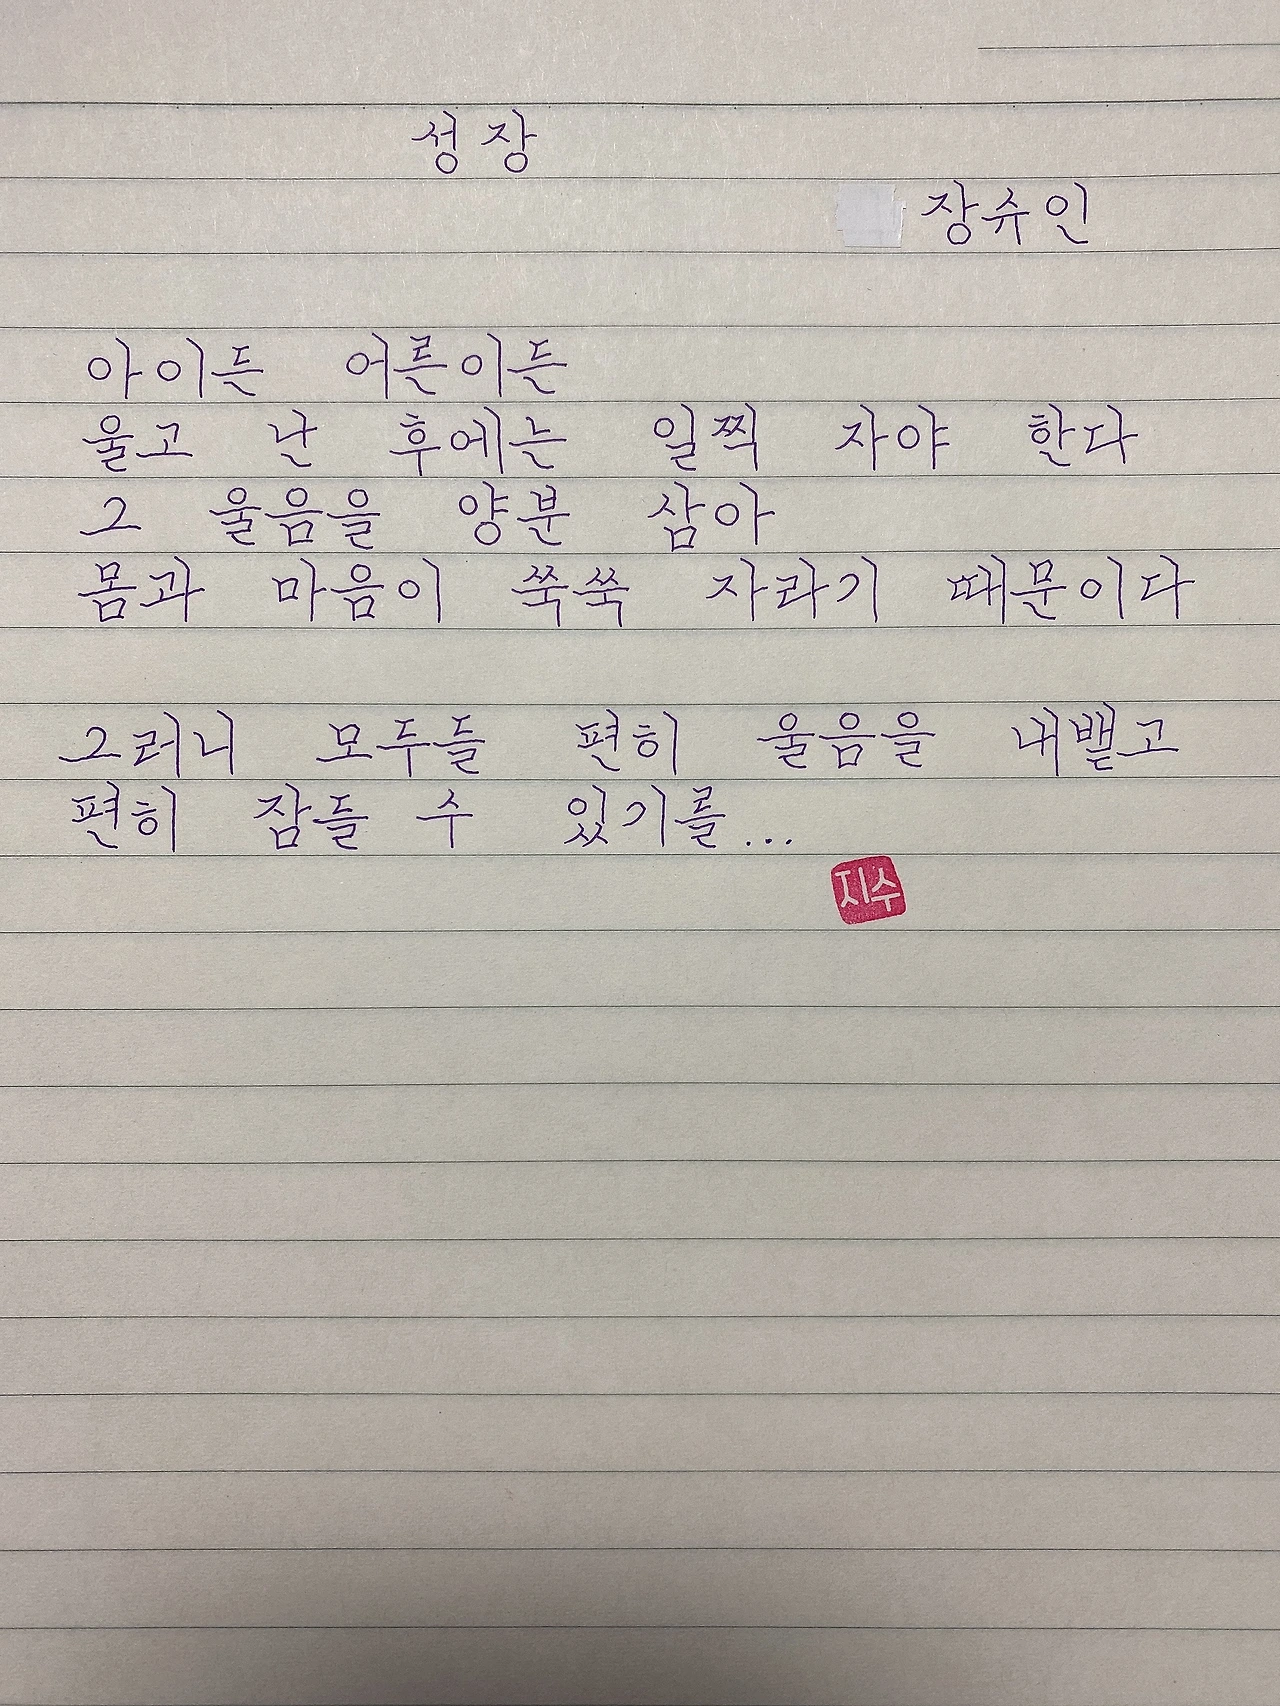 성장
장슈인
아이든 어른이든
울고 난 후에는 일찍 자야 한다
그 울음을 양분 삼아
몸과 마음이 쑥쑥 자라기 때문이다
그러니 모두들 편히 울음을 내뱉고
편히 잠들 수 있기를...
지수